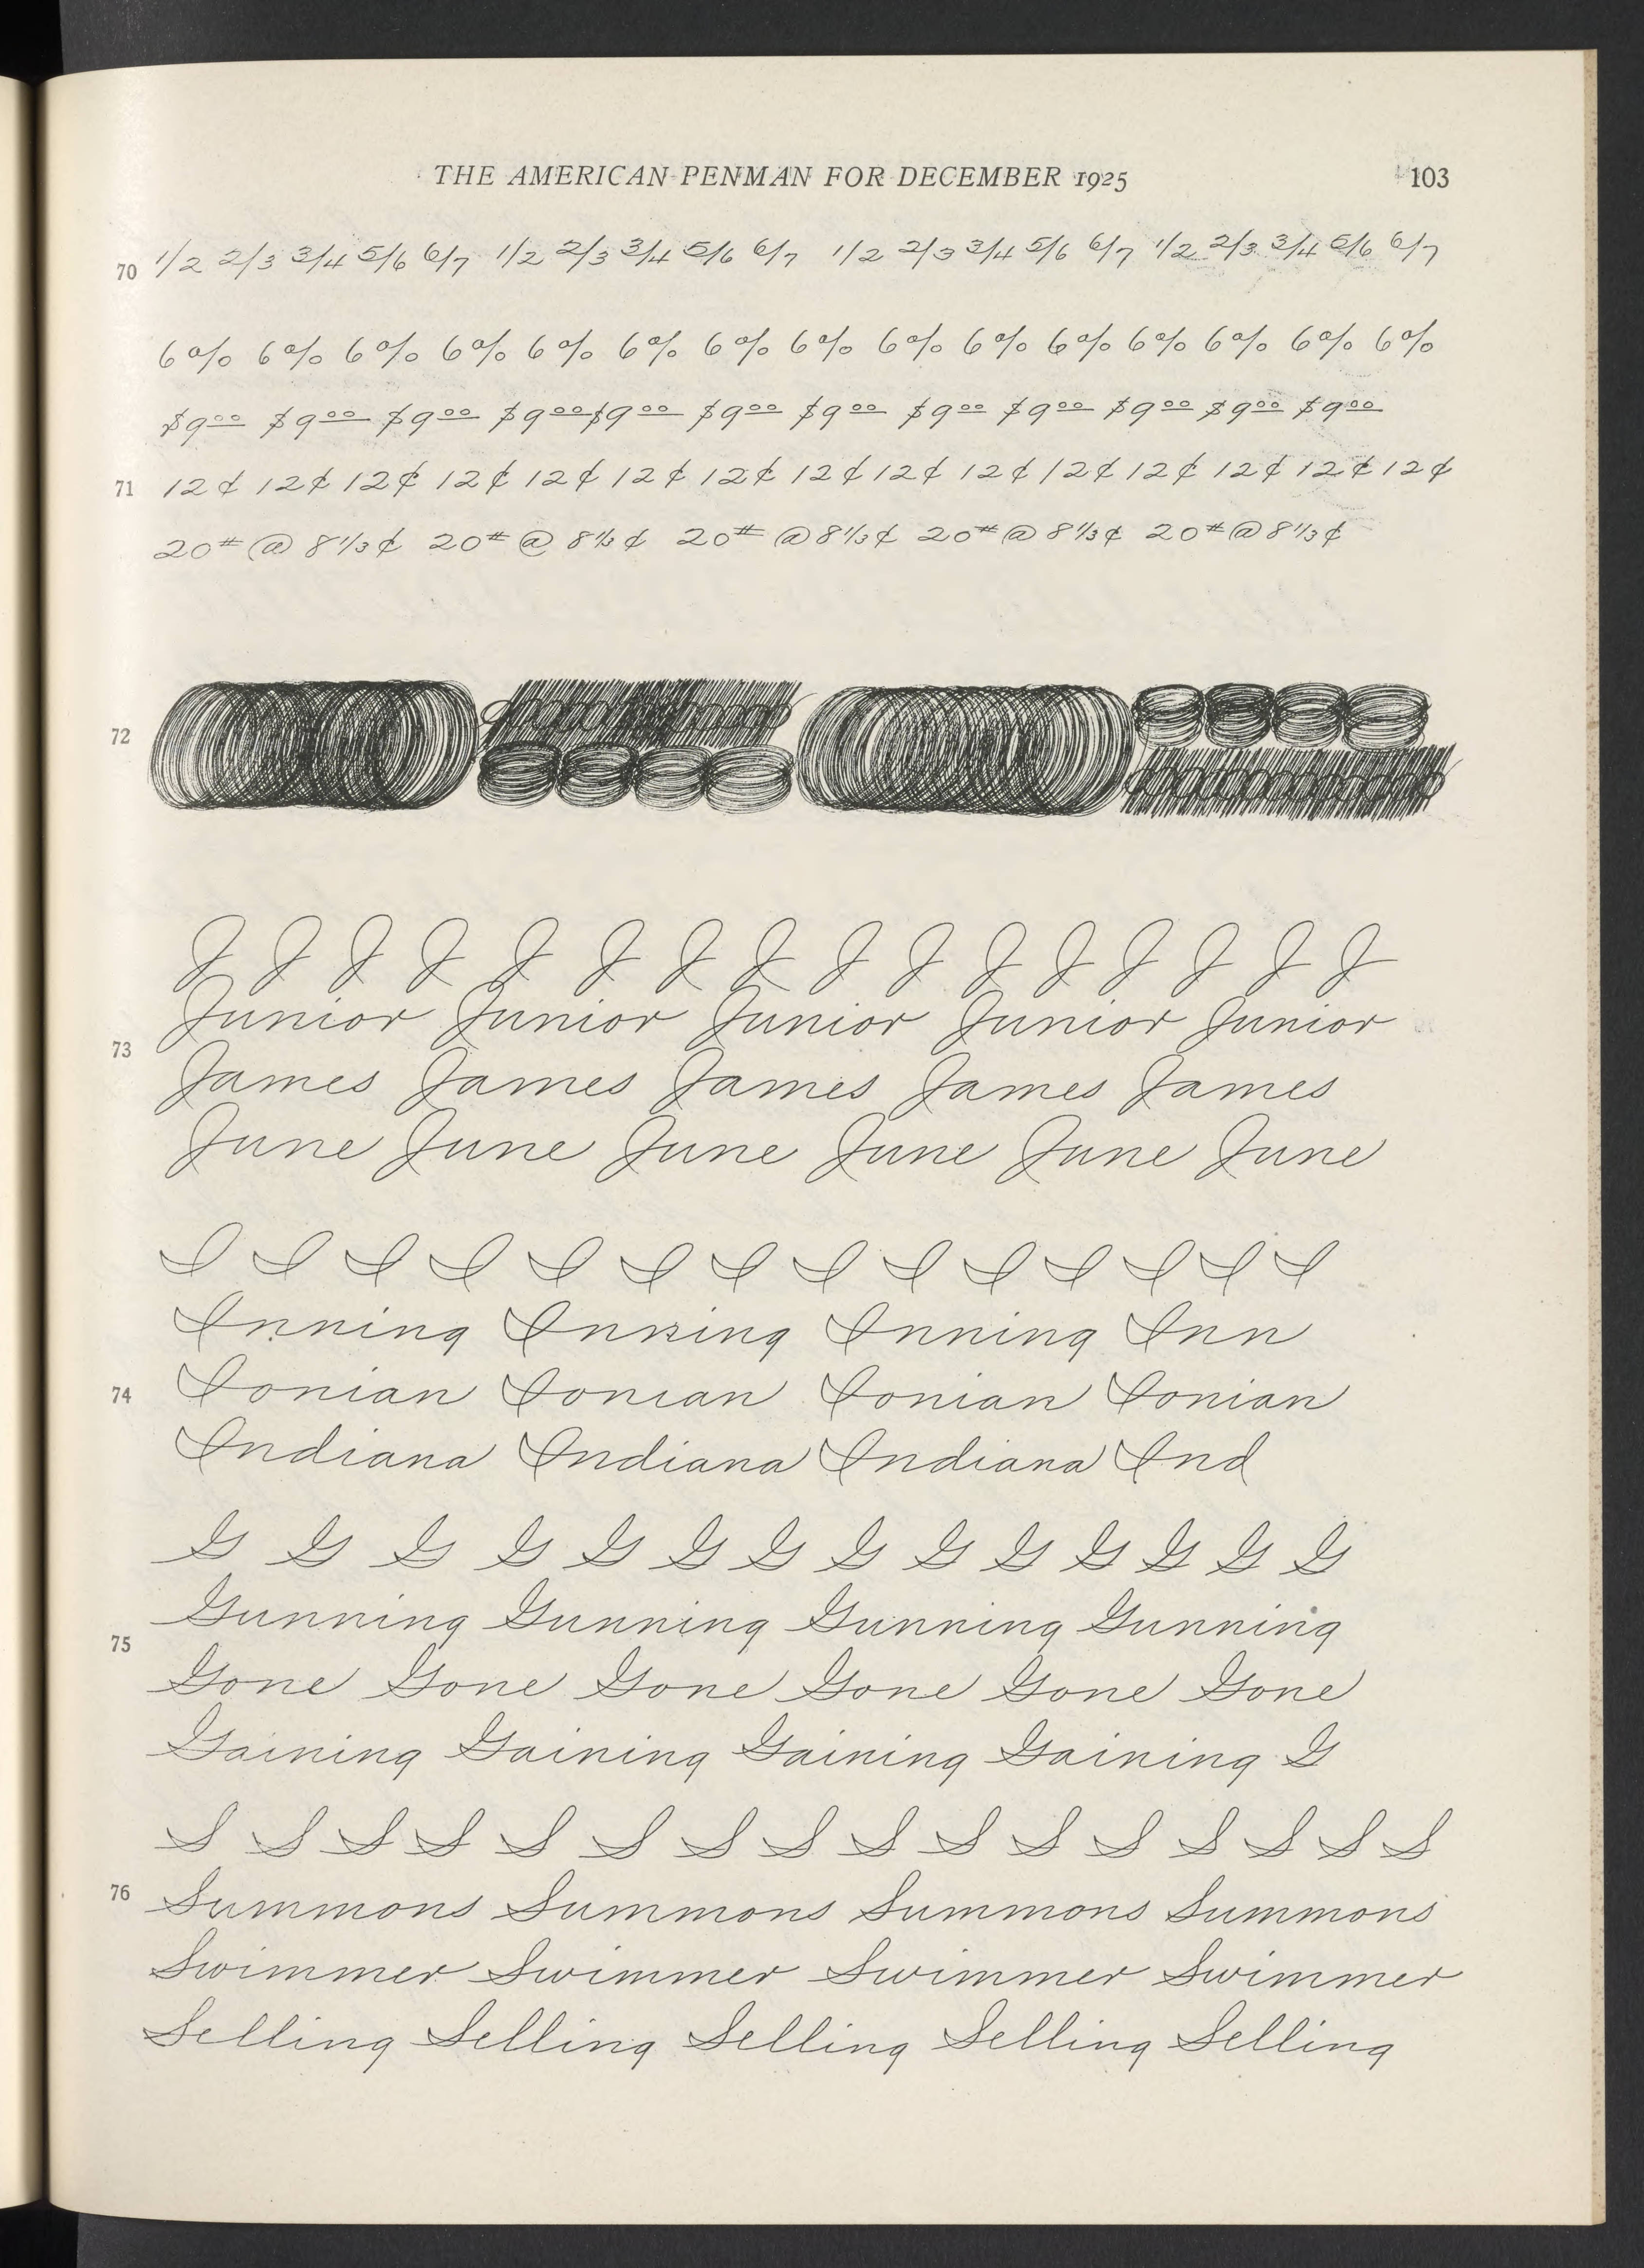 THE AMERICAN PENMAN FOR DECEMBER 1925 103
70 1/2 2/3 3/4 5/6 6/7 1/2 2/3 3/4 5/6 6/7 1/2 2/3 3/4 5/6 6/7 1/2 2/3 3/4 5/6 6/7
6% 6% 6% 6% 6% 6% 6% 6% 6% 6% 6% 6% 6% 6% 6%
$9 00 $9 00 $9 00 $9 00 $9 00 $9 00 $9 00 $9 00 $9 00 $9 00 $9 00 $9 00
71 12¢ 12¢ 12¢ 12¢ 12¢ 12¢ 12¢ 12¢ 12¢ 12¢ 12¢ 12¢ 12¢ 12¢ 12¢
20# @ 8 1/3¢ 20# @ 8 1/3¢ 20# @ 8 1/3¢ 20# @ 8 1/3¢ 20# @ 8 1/3¢
72
J J J J J J J J J J J J J J J J
Junior Junior Junior Junior Junior
73
James James James James James
June June June June June June
I I I I I I I I I I I I I I
Inning Inning Inning Inn
74 Ionian Ionian Ionian Ionian
Indiana Indiana Indiana Ind
G G G G G G G G G G G G G G
Gunning Gunning Gunning Gunning
75
Gone Gone Gone Gone Gone Gone
Gaining Gaining Gaining Gaining G
S S S S S S S S S S S S S S S S
76 Summons Summons Summons Summons
Swimmer Swimmer Swimmer Swimmer
Selling Selling Selling Selling Selling